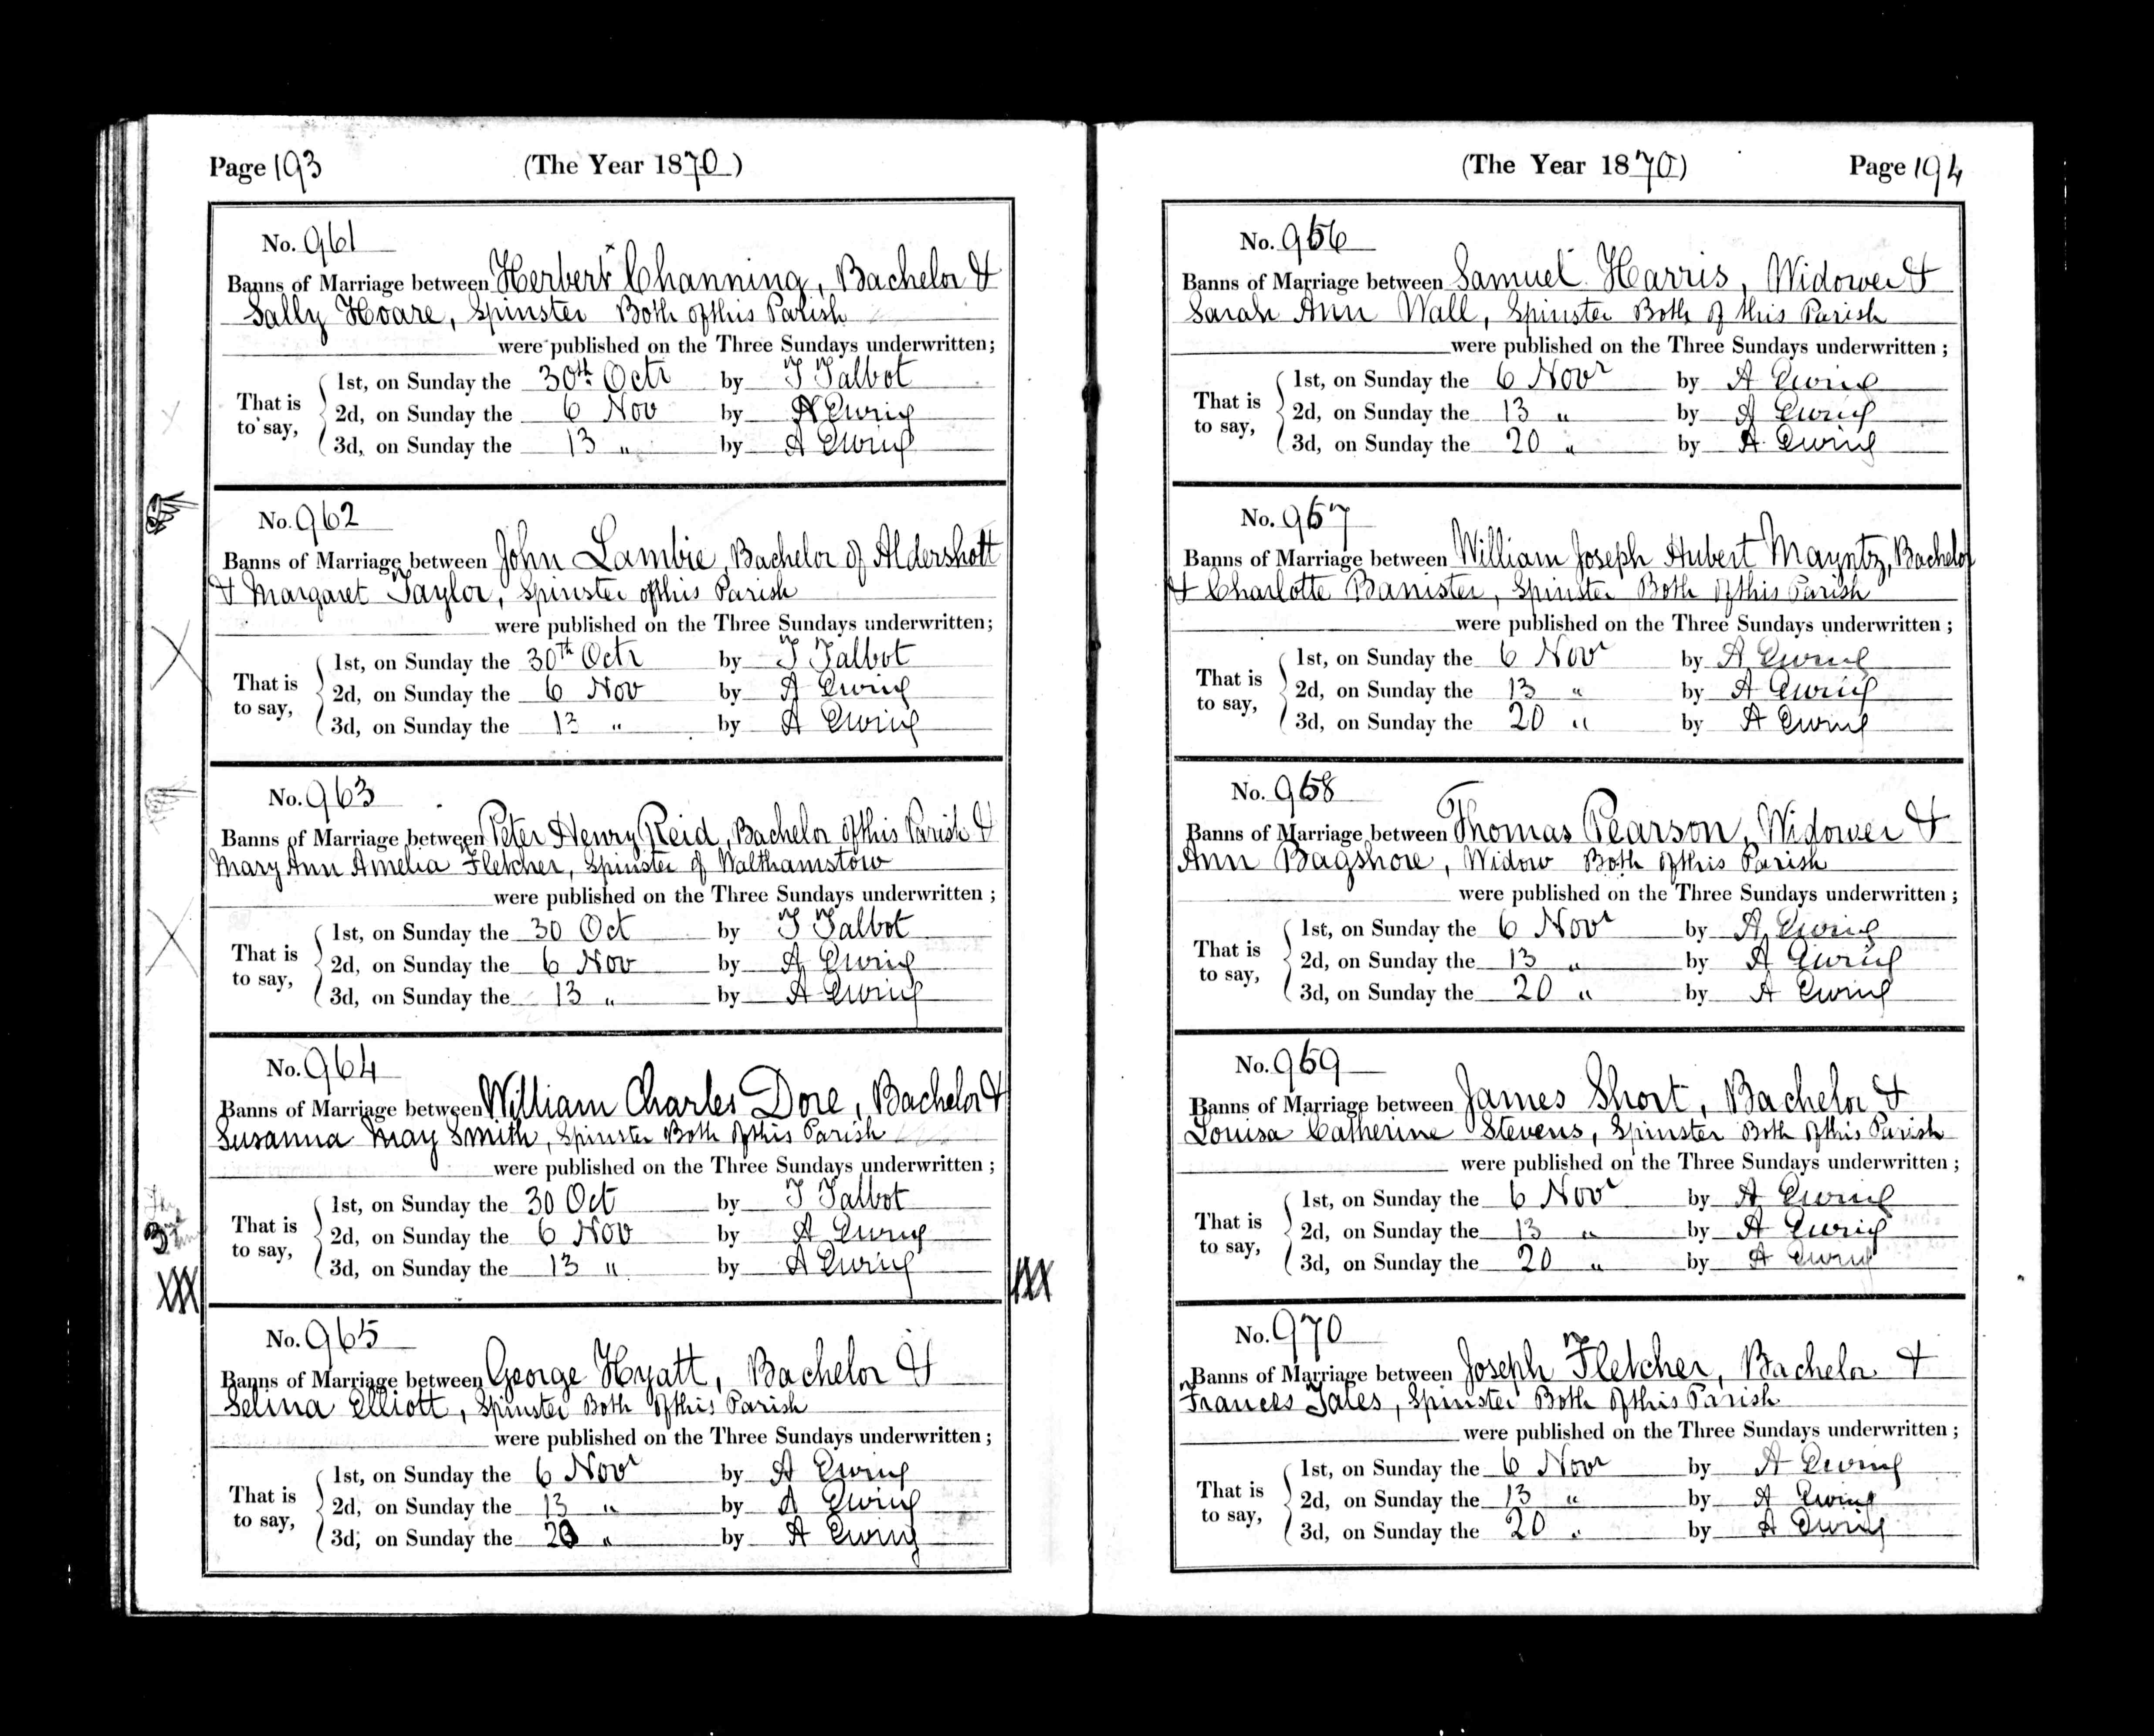 Page 193 (The Year 1870)
No. 961
Banns of Marriage between Herbert Channing, Bachelor &
Sally Hoare, Spinster Both of this Parish
were published on the Three Sundays underwritten;
That is to say,
1st, on Sunday the 30th Octr by T Talbot
2d, on Sunday the 6 Nov by A Ewing
3d, on Sunday the 13 " by A Ewing
No. 962
Banns of Marriage between John Lambie, Bachelor of Aldershott
& Margaret Taylor, Spinster of this Parish
were published on the Three Sundays underwritten;
That is to say,
1st, on Sunday the 30th Octr by T Talbot
2d, on Sunday the 6 Nov by A Ewing
3d, on Sunday the 13 " by A Ewing
No. 963
Banns of Marriage between Peter Henry Reid, Bachelor of this Parish &
Mary Ann Amelia Fletcher, Spinster of Walthamstow
were published on the Three Sundays underwritten;
That is to say,
1st, on Sunday the 30 Oct by T Talbot
2d, on Sunday the 6 Nov by A Ewing
3d, on Sunday the 13 " by A Ewing
No. 964
Banns of Marriage between William Charles Dore, Bachelor &
Susanna May Smith, Spinster Both of this Parish
were published on the Three Sundays underwritten;
That is to say,
1st, on Sunday the 30 Oct by T Talbot
2d, on Sunday the 6 Nov by A Ewing
3d, on Sunday the 13 " by A Ewing
No. 965
Banns of Marriage between George Hyatt, Bachelor &
Selina Elliott, Spinster Both of this Parish
were published on the Three Sundays underwritten;
That is to say,
1st, on Sunday the 6 Novr by A Ewing
2d, on Sunday the 13 " by A Ewing
3d, on Sunday the 20 " by A Ewing
(The Year 1870) Page 194
No. 956
Banns of Marriage between Samuel Harris, Widower &
Sarah Ann Wall, Spinster Both of this Parish
were published on the Three Sundays underwritten;
That is to say,
1st, on Sunday the 6 Novr by A Ewing
2d, on Sunday the 13 " by A Ewing
3d, on Sunday the 20 " by A Ewing
No. 957
Banns of Marriage between William Joseph Hubert Mayntz, Bachelor
& Charlotte Banister, Spinster Both of this Parish
were published on the Three Sundays underwritten;
That is to say,
1st, on Sunday the 6 Novr by A Ewing
2d, on Sunday the 13 " by A Ewing
3d, on Sunday the 20 " by A Ewing
No. 958
Banns of Marriage between Thomas Pearson, Widower &
Ann Bagshore, Widow Both of this Parish
were published on the Three Sundays underwritten;
That is to say,
1st, on Sunday the 6 Novr by A Ewing
2d, on Sunday the 13 " by A Ewing
3d, on Sunday the 20 " by A Ewing
No. 959
Banns of Marriage between James Short, Bachelor &
Louisa Catherine Stevens, Spinster Both of this Parish
were published on the Three Sundays underwritten;
That is to say,
1st, on Sunday the 6 Novr by A Ewing
2d, on Sunday the 13 " by A Ewing
3d, on Sunday the 20 " by A Ewing
No. 970
Banns of Marriage between Joseph Fletcher, Bachelor &
Frances Tales, Spinster Both of this Parish
were published on the Three Sundays underwritten;
That is to say,
1st, on Sunday the 6 Novr by A Ewing
2d, on Sunday the 13 " by A Ewing
3d, on Sunday the 20 " by A Ewing